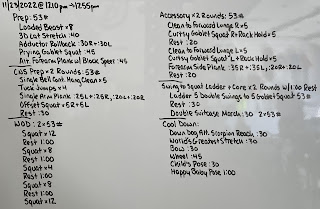 11/23/2022 @ 1210pm → 1255pm
Prep: 53#
Loaded Beast × 8
3D Cat Stretch :40
Adductor Rollback :30R + :30L
Prying Goblet Squat :45
Alt. Forearm Plank w/ Block Specs :45
CNS Prep × 2 Rounds: 53#
Single Bell Cont. Hang Clean × 5
Tuck Jumps × 4
Single Arm Plank :25L + :25R, :20L + :20R
Offset Squat × 5R + 5L
Rest :30
WOD: 2×53#
Squat × 12
Rest 1:00
Squat × 8
Rest 1:00
Squat × 4
Rest 1:00
Squat × 8
Rest 1:00
Squat × 12
Accessory × 2 Rounds: 53#
Clean to Forward Lunge R × 5
Curtsy Goblet Squat R + Rack Hold × 5
Rest :20
Clean to Forward Lunge L × 5
Curtsy Goblet Squat L + Rack Hold × 5
Forearm Side Plank :35R + :35L, :20R + :20L
Rest :20
Swing to Squat Ladder + Core × 2 Rounds w/ 1:00 Rest
Ladder 5 Double Swings to 5 Goblet Squat 53#
Rest :30
Double Suitcase March :30 2×53#
Cool Down:
Down Dog Alt. Scorpion Reach :30
World's Greatest Stretch :30
Bow :30
Wheel :45
Child's Pose :30
Happy Baby Pose 1:00